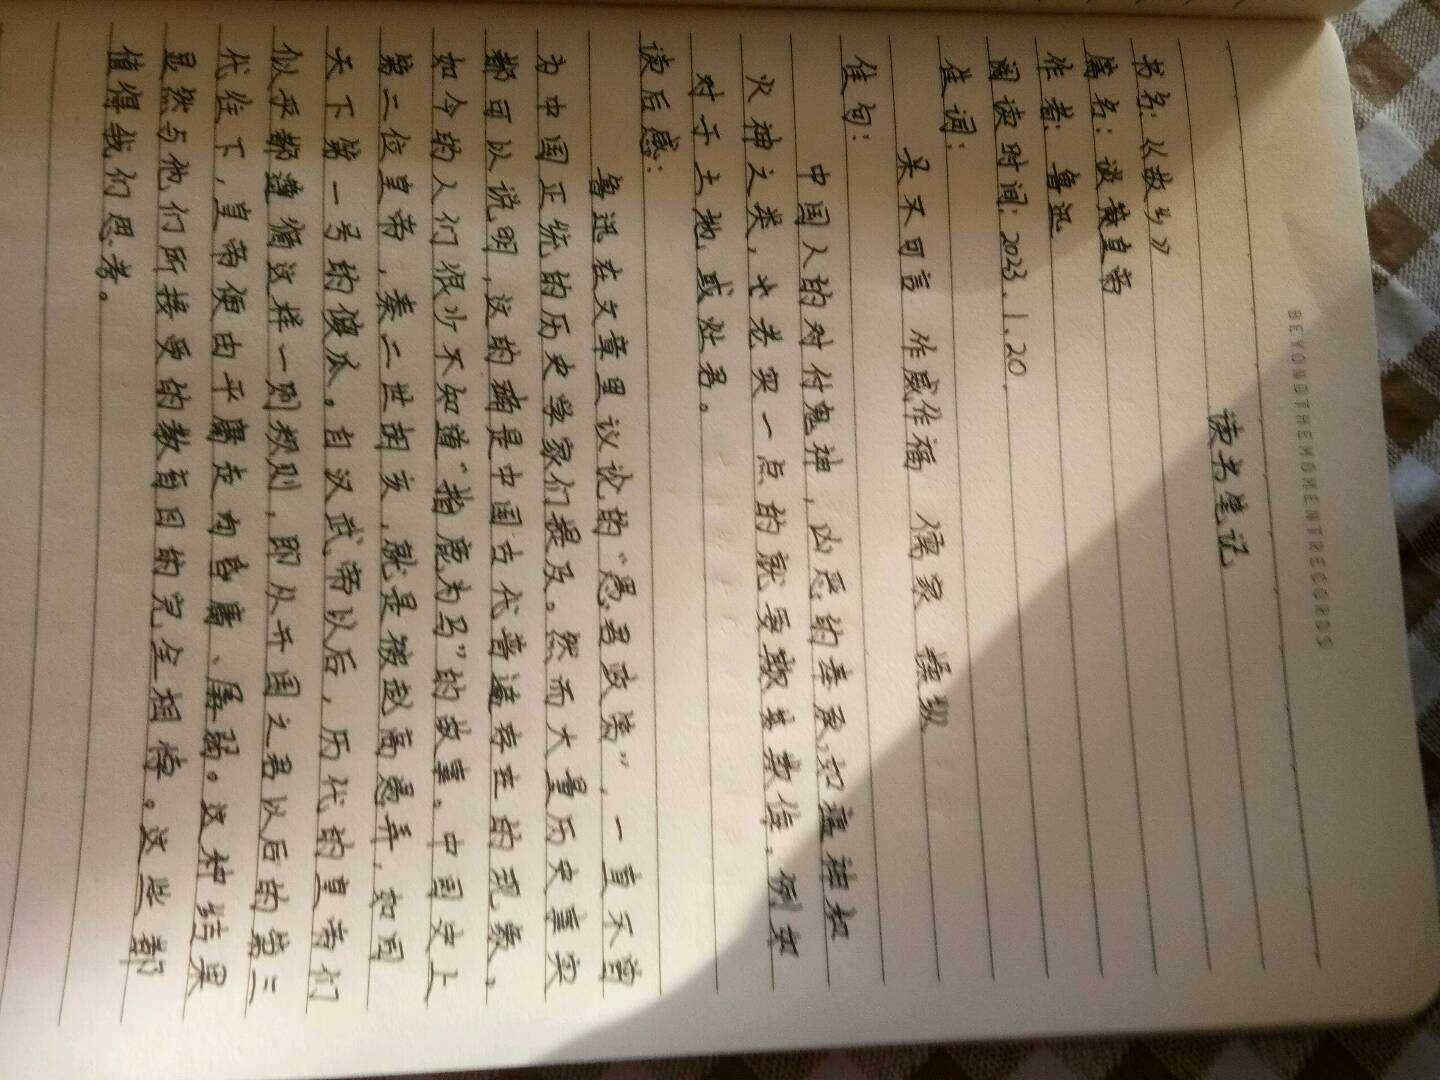 BEYONDTHEMOMENTRECORDS
读书笔记
书名:《故乡》
篇名:谈黄皇帝
作者:鲁迅
阅读时间:2023.1.20.
佳词:
呆不可言 作威作福 儒家
佳句:
中国人的对付鬼神,凶恶的奉承,如瘟神和
火神之类,老实一点的就要欺,例如
对于土地或灶君。
读后感:
鲁迅在文章里议论的“愚君政策”,一直不曾
为中国正统的历史学家们提及。然而大量历史事实
都可以说明,这的确是中国古代普遍存在的现象,
如今的人们很少不知道“指鹿为马”的故事。中国史上
第二位皇帝,秦二世胡亥,就是被赵高愚弄,如同
天下第一号的傻瓜。自汉武帝以后,历代的皇帝们
似乎都遵循这样一则规则,即从开国之君以后的第三
代往下,皇帝便由平庸走向昏庸、孱弱。这种结果
显然与他们所接受的教育目的完全相悖。这些都
值得我们思考。